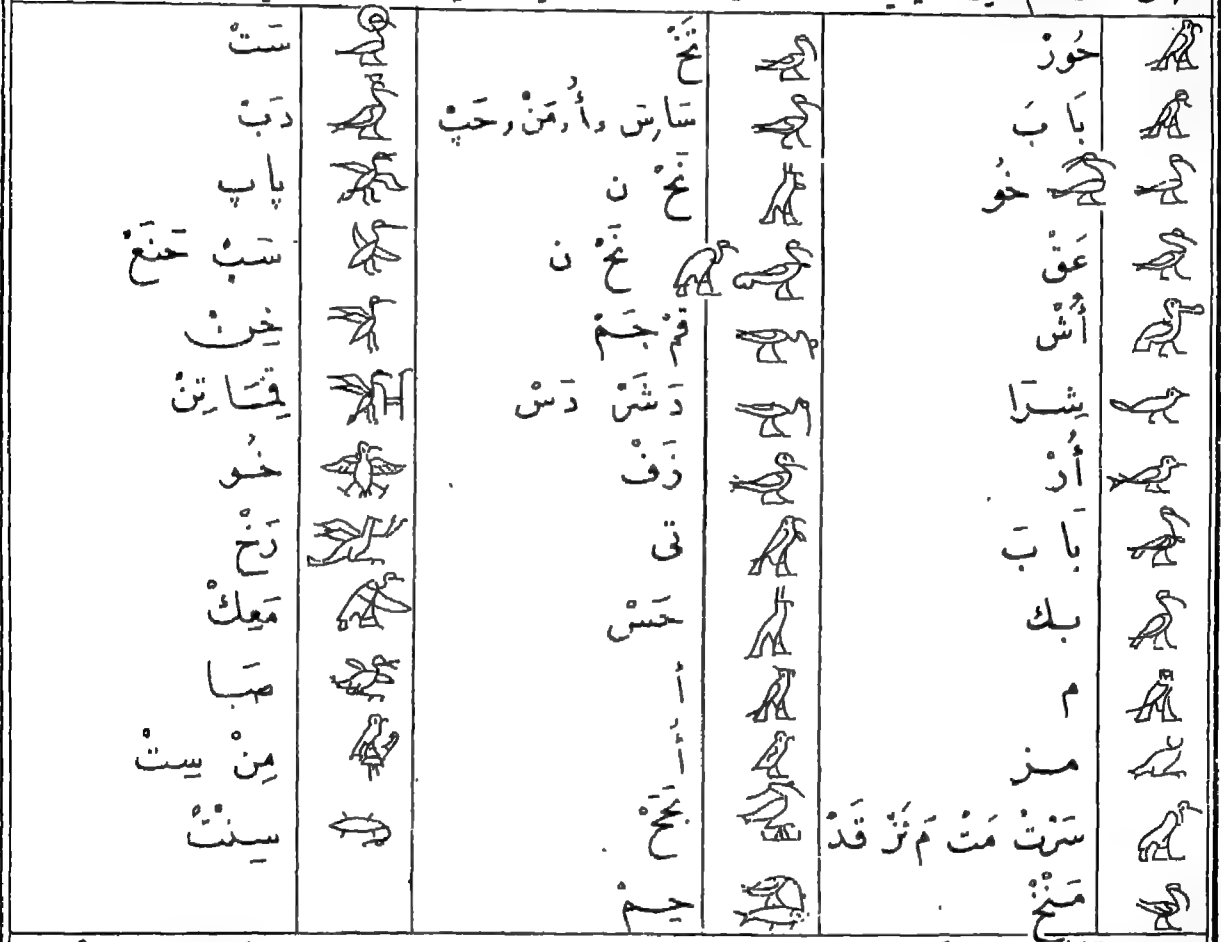 حُورْ
بَا بَ
خُو
عَقْ
أُشْ
شِرَا
أُرْ
بَا بَ
بك
م
مز
سَرْتْ مَتْ مَ نَرْ قَدْ
مَنْخْ
سَارِسَ , أُ , مَنْ , حَپْ
نَحْ ن
نَحْ ن
قَمْ جَمْ
دَشَرْ دَسْ
زَفْ
تى
حَسْ
أ
أُ
بَخَخْ
حِمْ
سَتْ
دَبْ
پاپ
سَبْ حَنَعْ
خِنْ
خُو
رَخْ
مَعِكْ
صَبَا
مِنْ سِتْ
سِنْتْ